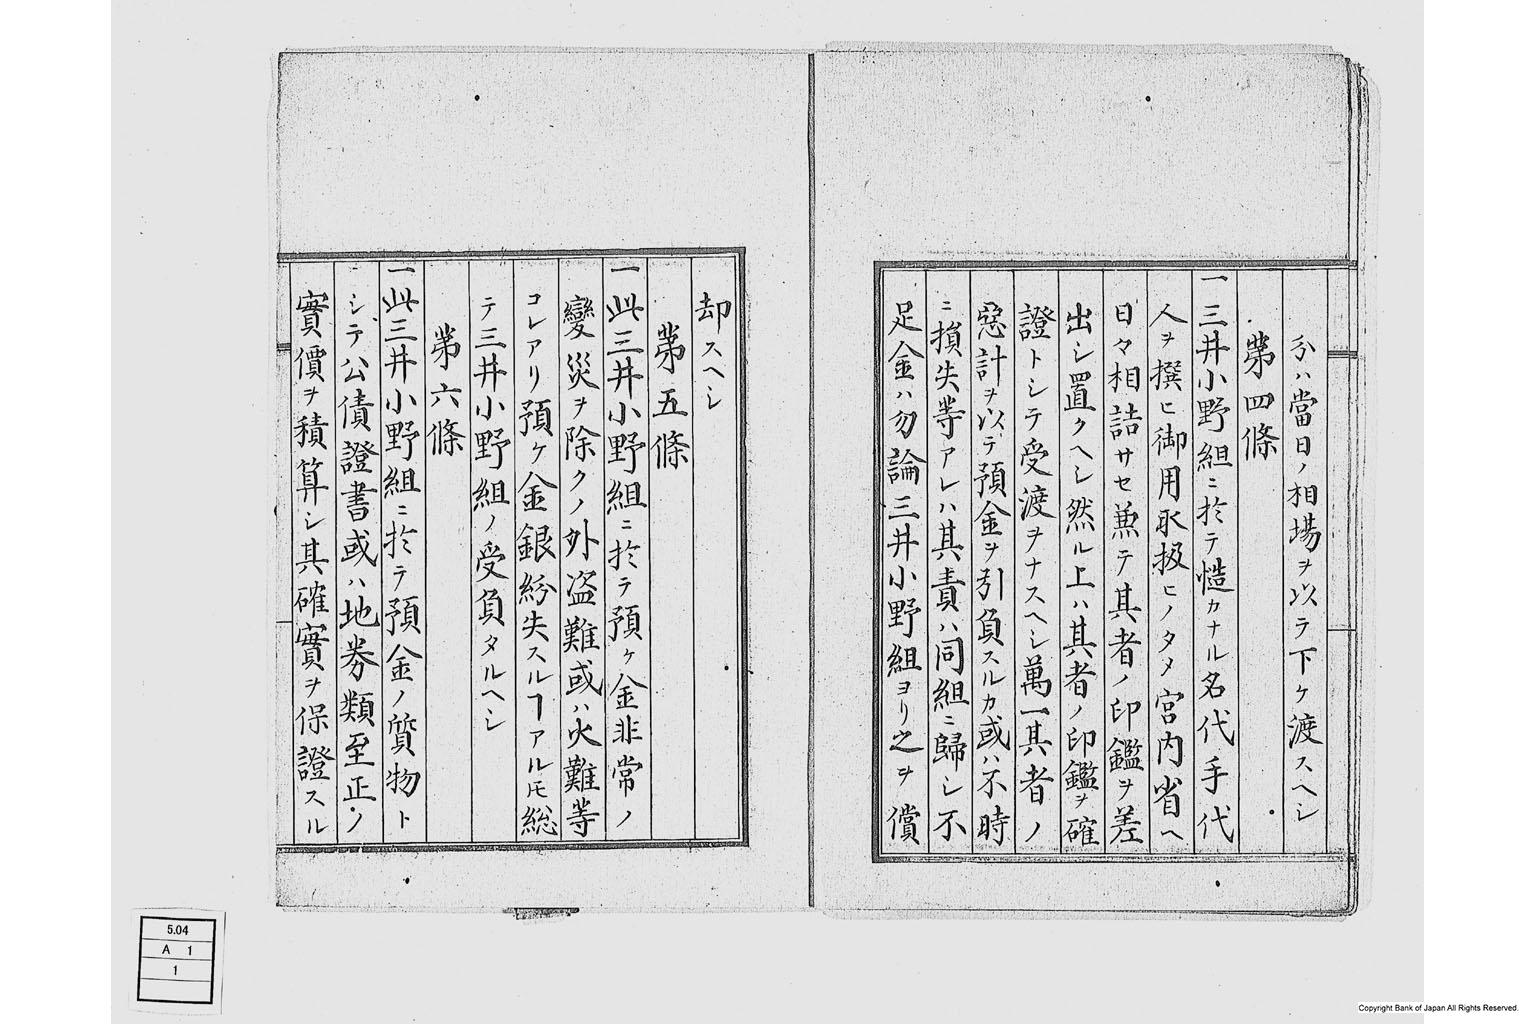 分ハ當日ノ相場ヲ以テ下ケ渡スヘシ
第四條
一三井小野組ニ於テ慥カナル名代手代
人ヲ撰ヒ御用取扱ヒノタメ宮内省ヘ
日々相詰サセ兼テ其者ノ印鑑ヲ差
出シ置クヘシ然ル上ハ其者ノ印鑑ヲ確
證トシテ受渡ヲナスヘシ萬一其者ノ
惡計ヲ以テ預金ヲ引負スルカ或ハ不時
ニ損失等アレハ其責ハ同組ニ歸シ不
足金ハ勿論三井小野組ヨリ之ヲ償
却スヘシ
第五條
一此三井小野組ニ於テ預ケ金非常ノ
變災ヲ除クノ外盗難或ハ火難等
コレアリ預ケ金銀紛失スルヿアルモ総
テ三井小野組ノ受負タルヘシ
第六條
一此三井小野組ニ於テ預金ノ質物ト
シテ公債證書或ハ地券類至正ノ
實價ヲ積算シ其確實ヲ保證スル
5.04
A 1
1
Copyright Bank of Japan All Rights Reserved.